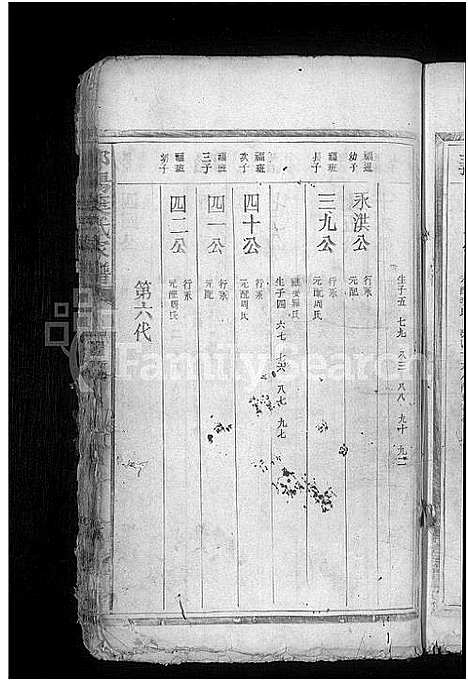 生子五 七九 八三 八八 九十 九二
福迥
幼子
永洪公
元配
福班
長子
三九公
行永
元配周氏
繼娶羅氏
生子四 六七 七六 八七 九七
福班
次子
四十公
行永
元配周氏
福班
三子
四一公
行永
元配
福班
幼子
四二公
行永
元配周氏
第六代
氏家譜
FamilySearch